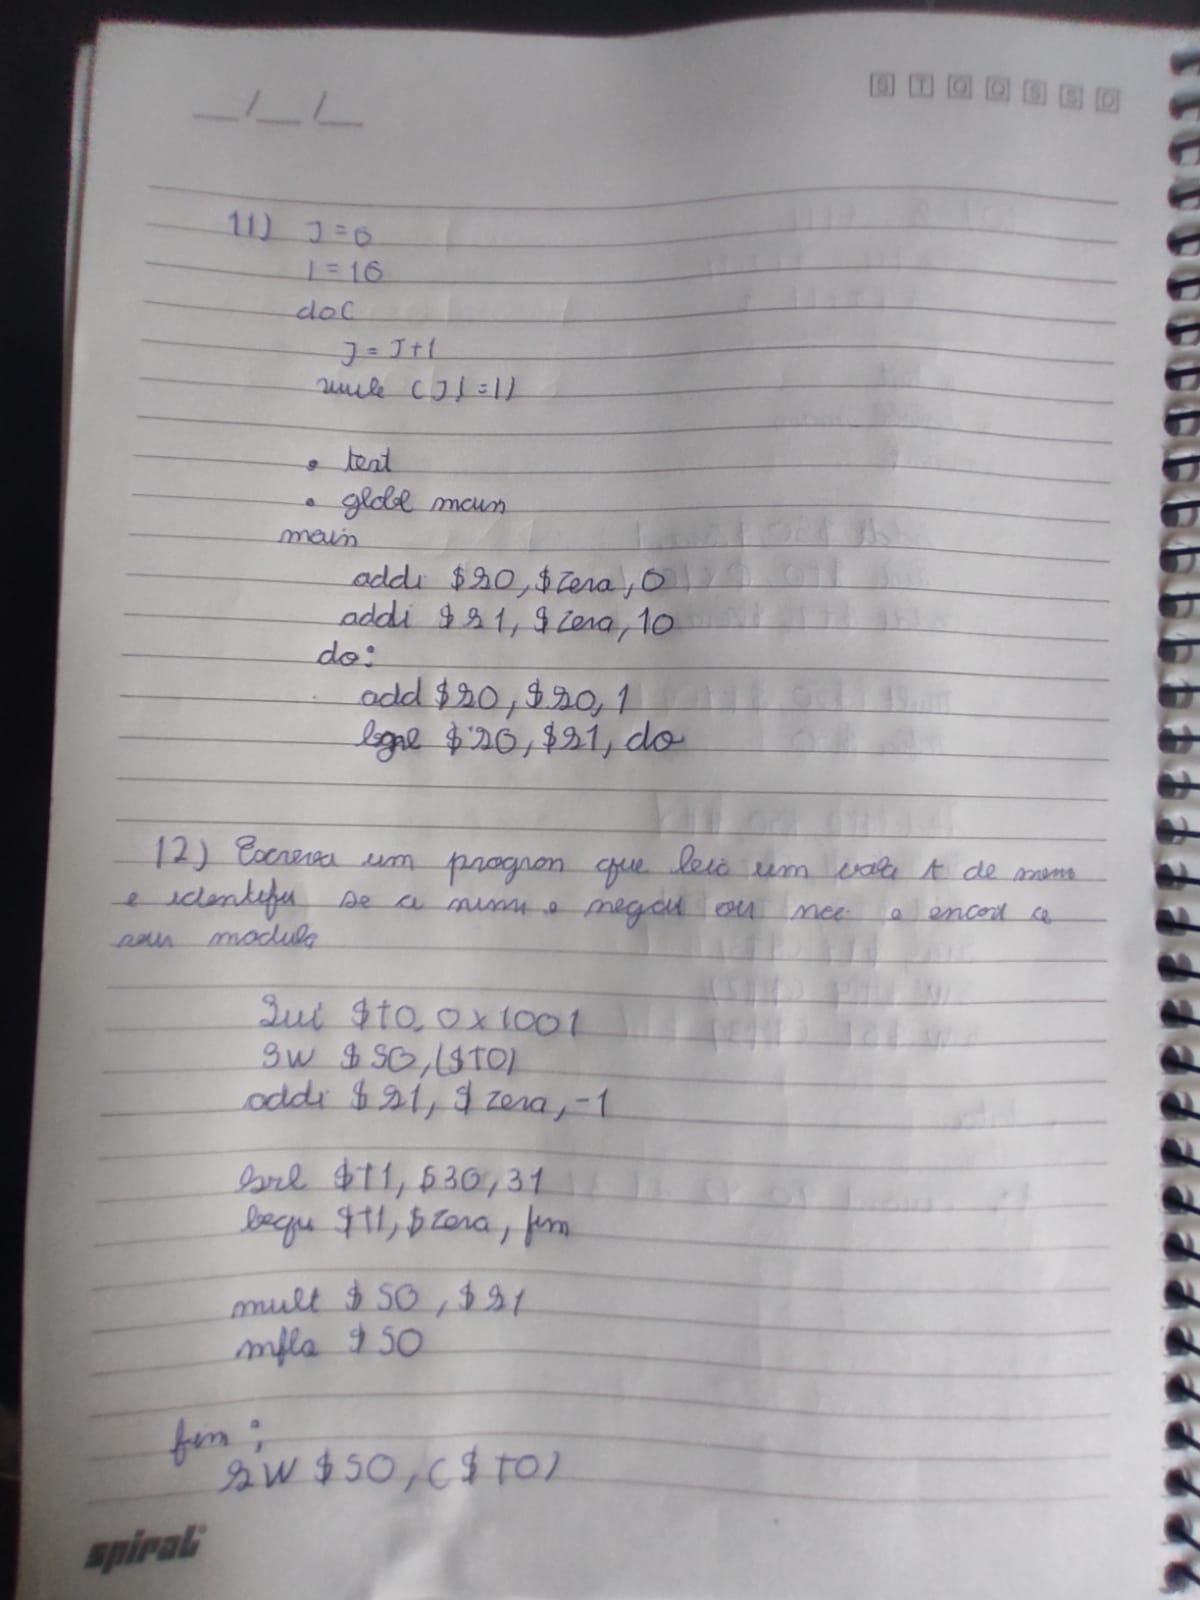 __/__/__
S T Q Q S S D
11) J=0
I=10
do{
J=J+1
while (J!=I)
. text
. globl main
main
addi $s0, $zero, 0
addi $s1, $zero, 10
do:
add $s0, $s0, 1
bne $s0, $s1, do
12) Escreva um program que leia um valor A de mem
e identifu se a num e negau ou nao e encont o
seu modulo
lui $t0, 0x1001
sw $s0, ($t0)
addi $s1, $zero, -1
srl $t1, $s0, 31
bequ $t1, $zero, fim
mult $s0, $s1
mflo $s0
fim:
sw $s0, ($t0)
spiral